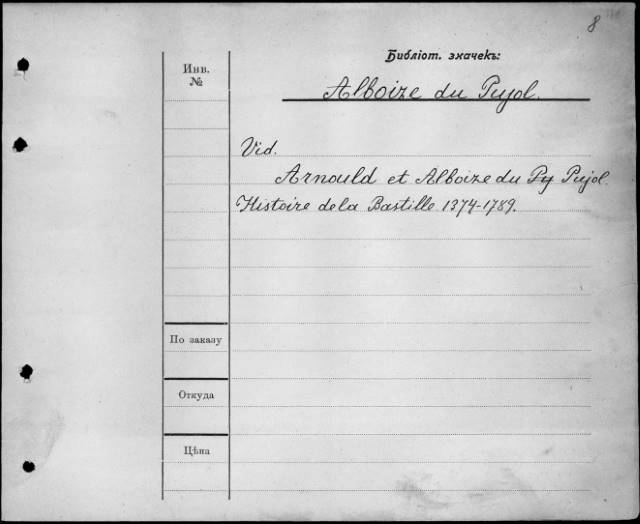 8
Библіот. значекъ:
Инв.
№
Alboize du Pujol.
Vid.
Arnould et Alboize du Py Pujol.
Histoire de la Bastille 1374-1789.
По заказу
Откуда
Цѣна